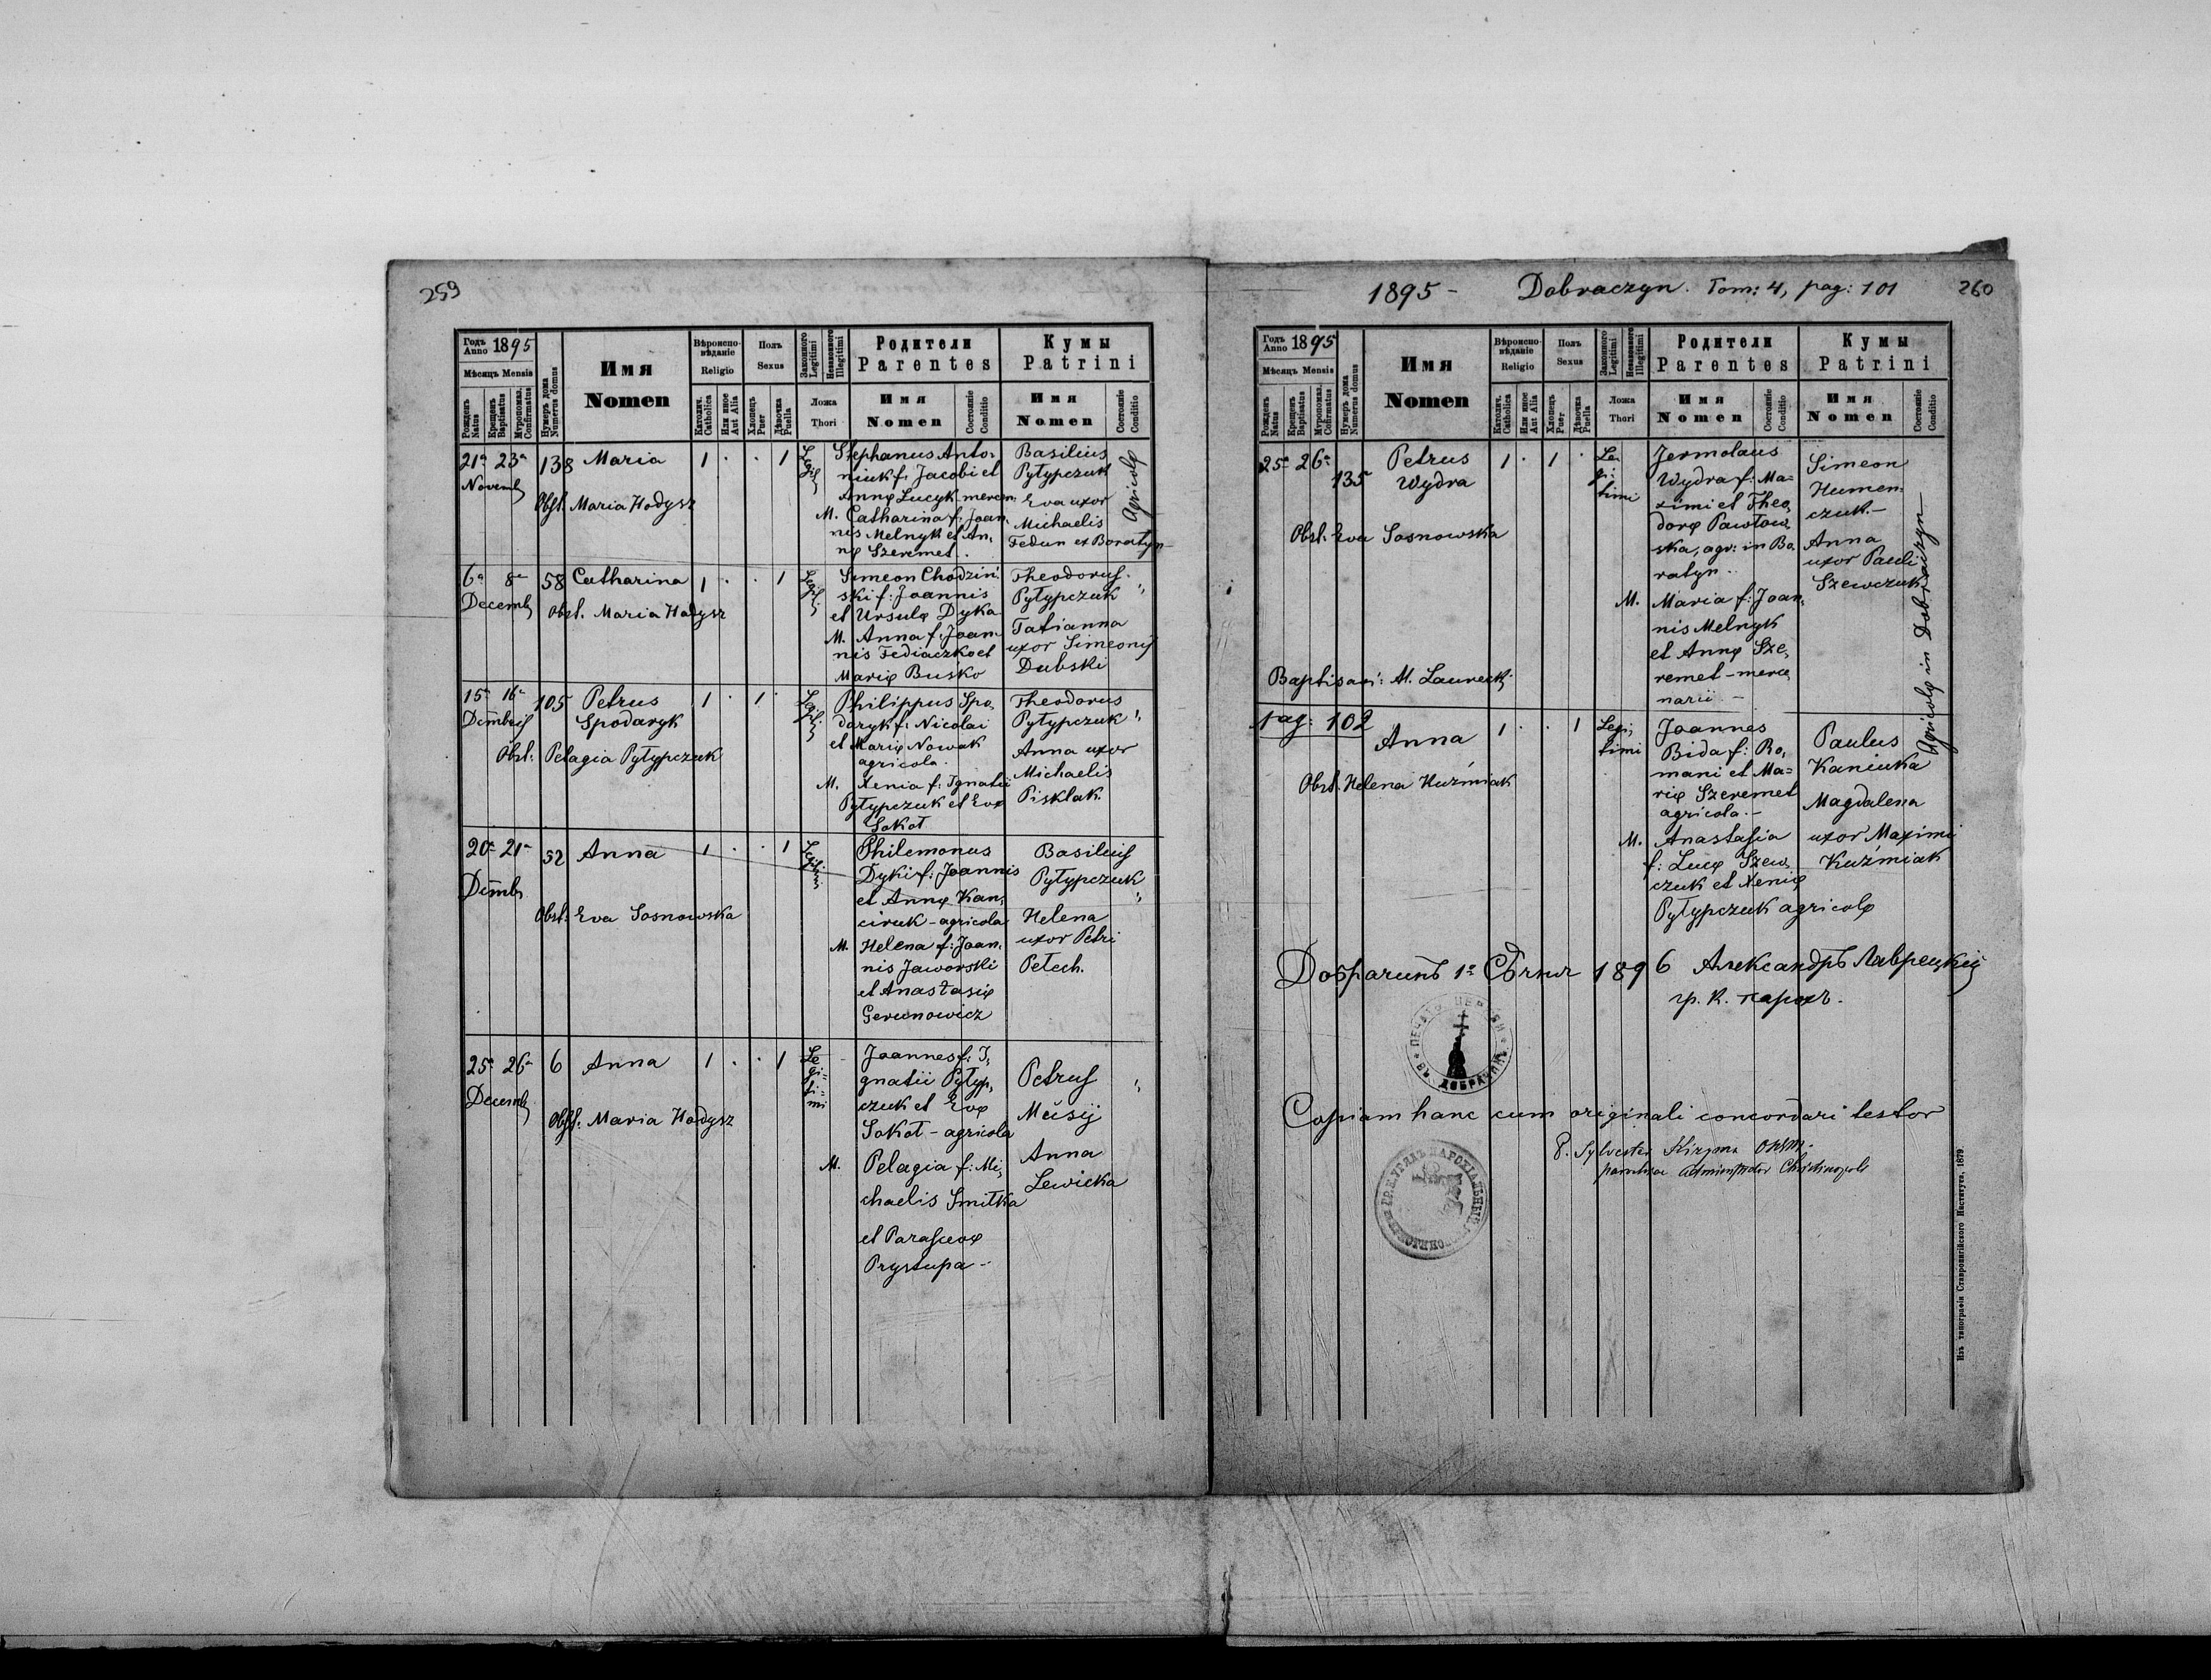 259
Годъ Anno 1895
Мѣсяцъ Mensis
Рожденъ Natus
Крещенъ Baptisatus
Муропомаз. Confirmatus
Нумеръ дома Numerus domus
Имя
Nomen
Вѣроиспо-
вѣданіе
Religio
Католич. Catholica
Или иное Aut Alia
Полъ
Sexus
Хлопецъ Puer
Дѣвочка Puella
Законного Legitimi
Незаконного Illegitimi
Ложа
Thori
Родители
Parentes
Имя
Nomen
Состояніе Conditio
Кумы
Patrini
Имя
Nomen
Состояніе Conditio
21a 23a 138 Maria 1 . . 1
Novemb
Obst. Maria Hodysz
Stephanus Anto-
niuk f. Jacobi et
Annę Lucyk mercen.
M. Catharina f: Joan
nis Melnyk et An,
nę Szeremet.
Basilius
Pytypczuk
Eva uxor
Michaelis
Fedun ex Boratyn
Agricolę
6a 8a 58 Catharina 1 . . 1
Decemb
Obst. Maria Hodysz
Simeon Chodzin
ski f: Joannis
et Ursulę Dyka
M. Anna f: Joan
nis Fediaczko et
Marię Busko
Theodorus
Pytypczuk "
Tatianna
uxor Simeonis
Dubski
15a 16a 105 Petrus 1 . 1 .
Spodaryk
Obst. Pelagia Pytypczuk
Philippus Spo,
daryk f: Nicolai
et Marię Nowak
agricola.
M. Xenia f: Ignatii
Pytypczuk et Evę
Sokoł
Theodorus
Pytypczuk "
Anna uxor
Michaelis
Pisklak.
20a 21a 52 Anna 1 . . 1
Dcmb
Obst: Eva Sosnowska
Philemonus
Dyki f: Joannis
et Annę Kan,
ciruk - agricola
M. Helena f: Joan.
nis Jaworski
et Anastasię
Gerunowicz
Basilius
Pytypczuk "
Helena
uxor Petri
Petech.
25a 26a 6 Anna 1 . . 1
Decemb
Obst. Maria Hodysz
Le
gi=
ti=
mi
Joannes f: I,
gnatii Pytyp,
czuk et Evę
Sokoł - agricola
M. Pelagia f: Mi,
chaelis Smitka
et Parascevę
Prystupa -
Petrus "
Musij
Anna
Lewicka
1895 - Dobraczyn. Tom: 4, pag: 101
260
Годъ Anno 1895
Мѣсяцъ Mensis
Рожденъ Natus
Крещенъ Baptisatus
Муропомаз. Confirmatus
Нумеръ дома Numerus domus
Имя
Nomen
Вѣроиспо-
вѣданіе
Religio
Католич. Catholica
Или иное Aut Alia
Полъ
Sexus
Хлопецъ Puer
Дѣвочка Puella
Законного Legitimi
Незаконного Illegitimi
Ложа
Thori
Родители
Parentes
Имя
Nomen
Состояніе Conditio
Кумы
Patrini
Имя
Nomen
Состояніе Conditio
25a 26a 135 Petrus 1 . 1 .
Wydra
Obst. Eva Sosnowska
Baptisavi: Al. Laurecki
Le,
gi,
timi
Jermolaus
Wydra f: Ma=
ximi et Theo,
dorę Pawłow,
ska, agr: in Bo,
ratyn.
M. Maria f: Joan,
nis Melnyk
et Annę Sze,
remet - merce
narii. -
Simeon
Humen
czuk. -
Anna
uxor Pauli
Szewczuk
Agricolę in Dobraczyn
pag: 102
Anna 1 . . 1
Obst. Helena Kuźmiak
Legi,
timi
Joannes
Bida f: Ro,
mani et Ma=
rię Szeremet
agricola. -
M. Anastasia
f: Lucę Szew,
czuk et Xenię
Pytypczuk agricolę
Paulus
Kaniuka
Magdalena
uxor Maximi
Kuźmiak
Добрачинъ 1го Сѣчня 1896 Александръ Лаврецкій
гр. к. парохъ.
ПЕЧАТЬ ЦЕРКВИ ВЪ ДОБРАЧИНѢ
Copiam hanc cum originali concordari testor
P. Sylvester OSBM.
parochiae administrator Christinopoli
ГР. К. УРЯДЪ ПАРОХІАЛЬНЫЙ
Изъ типографіи Ставропигійского Института, 1879.